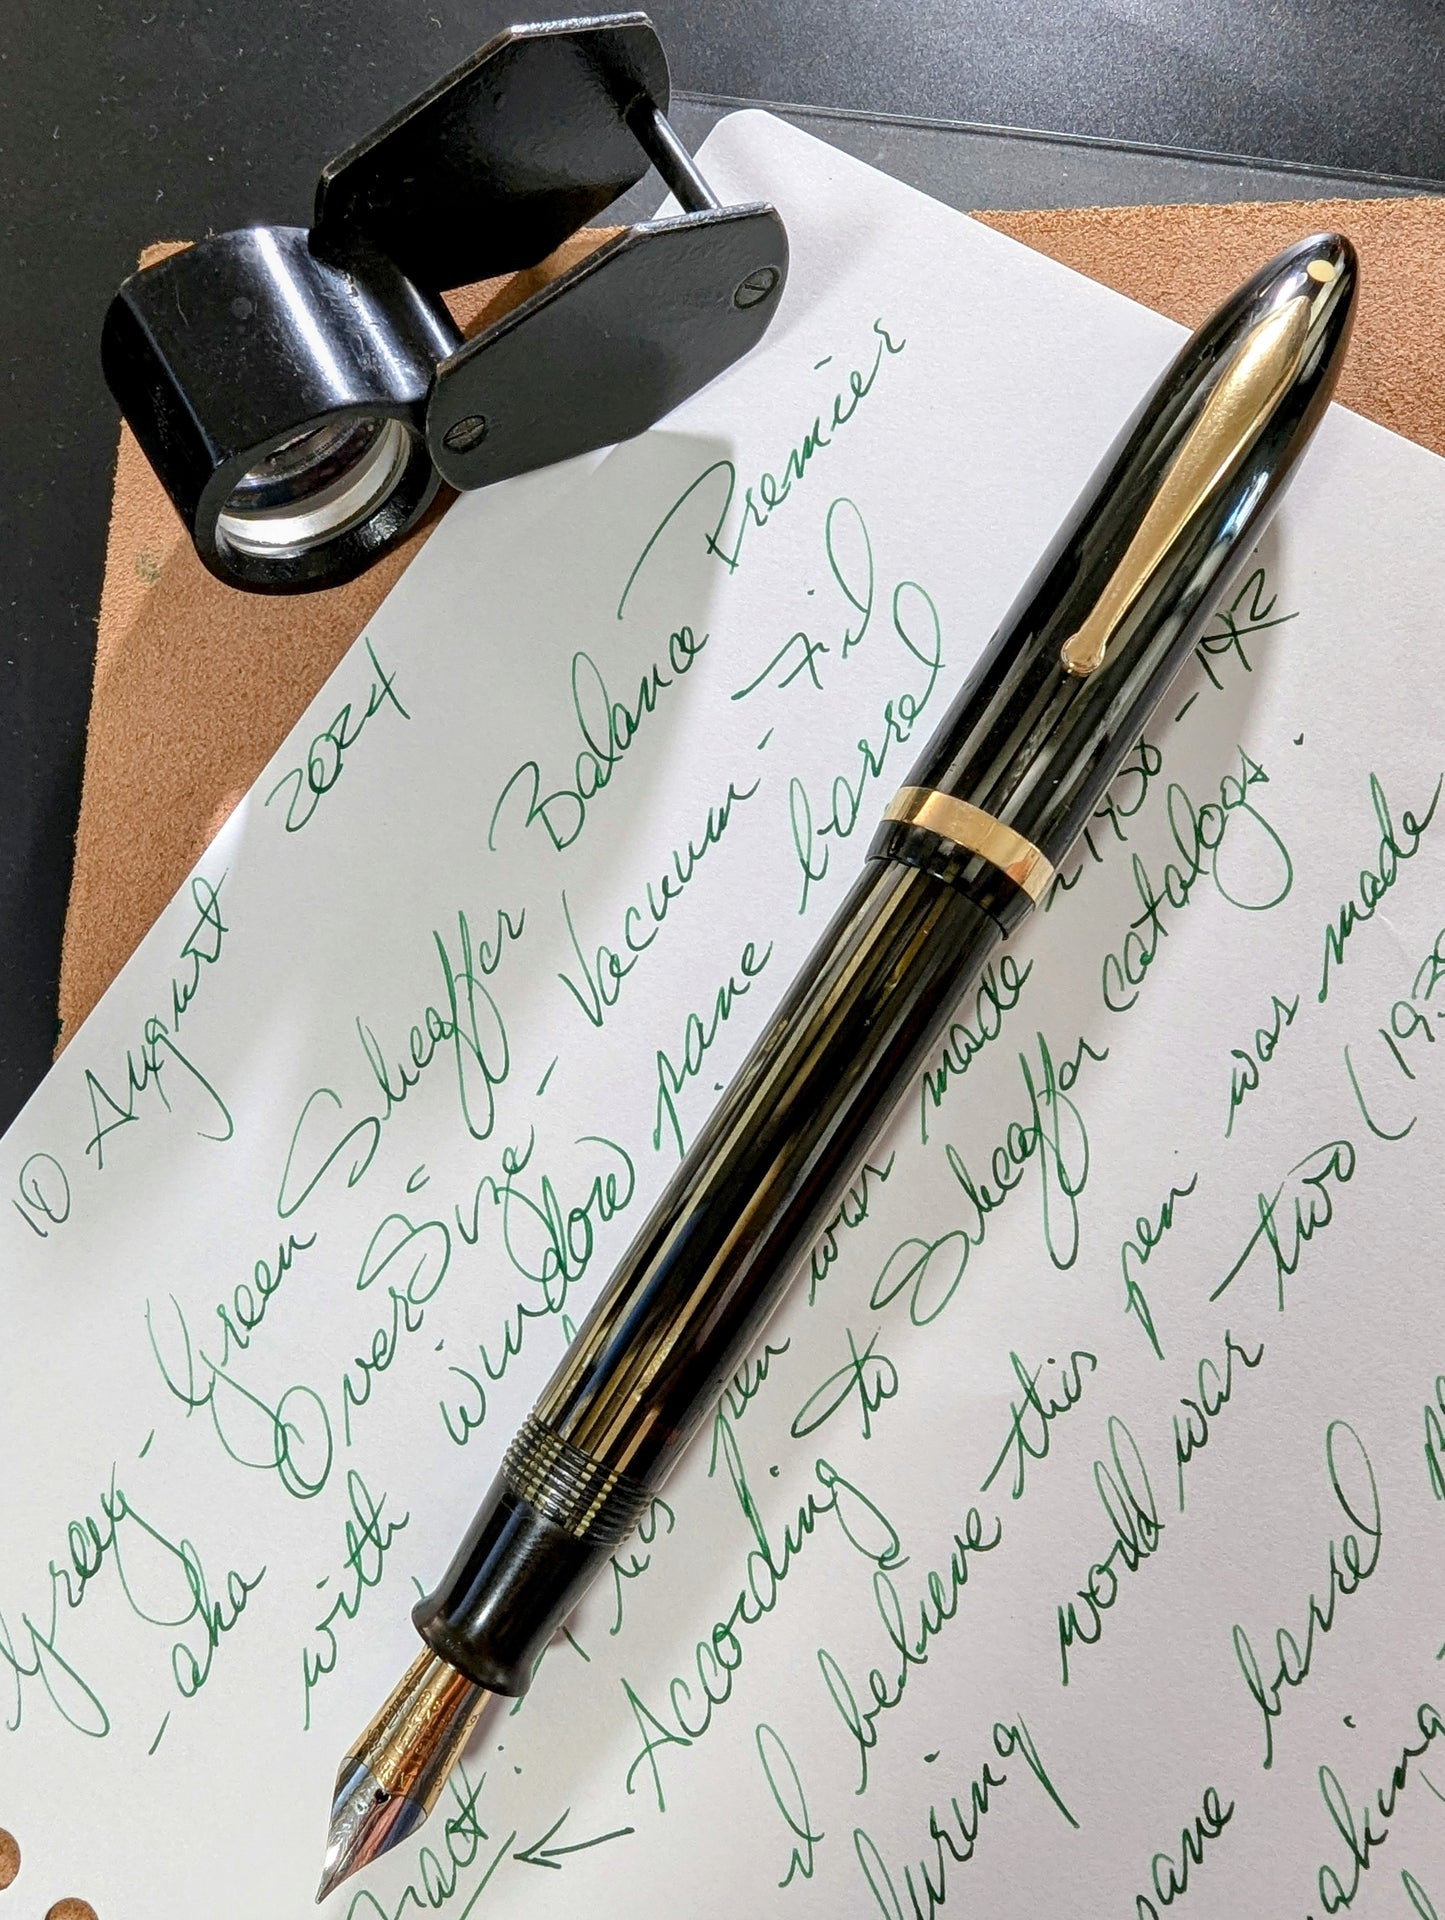 10 August 2024
Grey-Green Sheaffer Balance Premier
-aka OverSize - Vacuum-Fil
with window pane barrel
pen was made
According to Sheaffer catalogs.
I believe this pen was made
during world war two (193
barrel